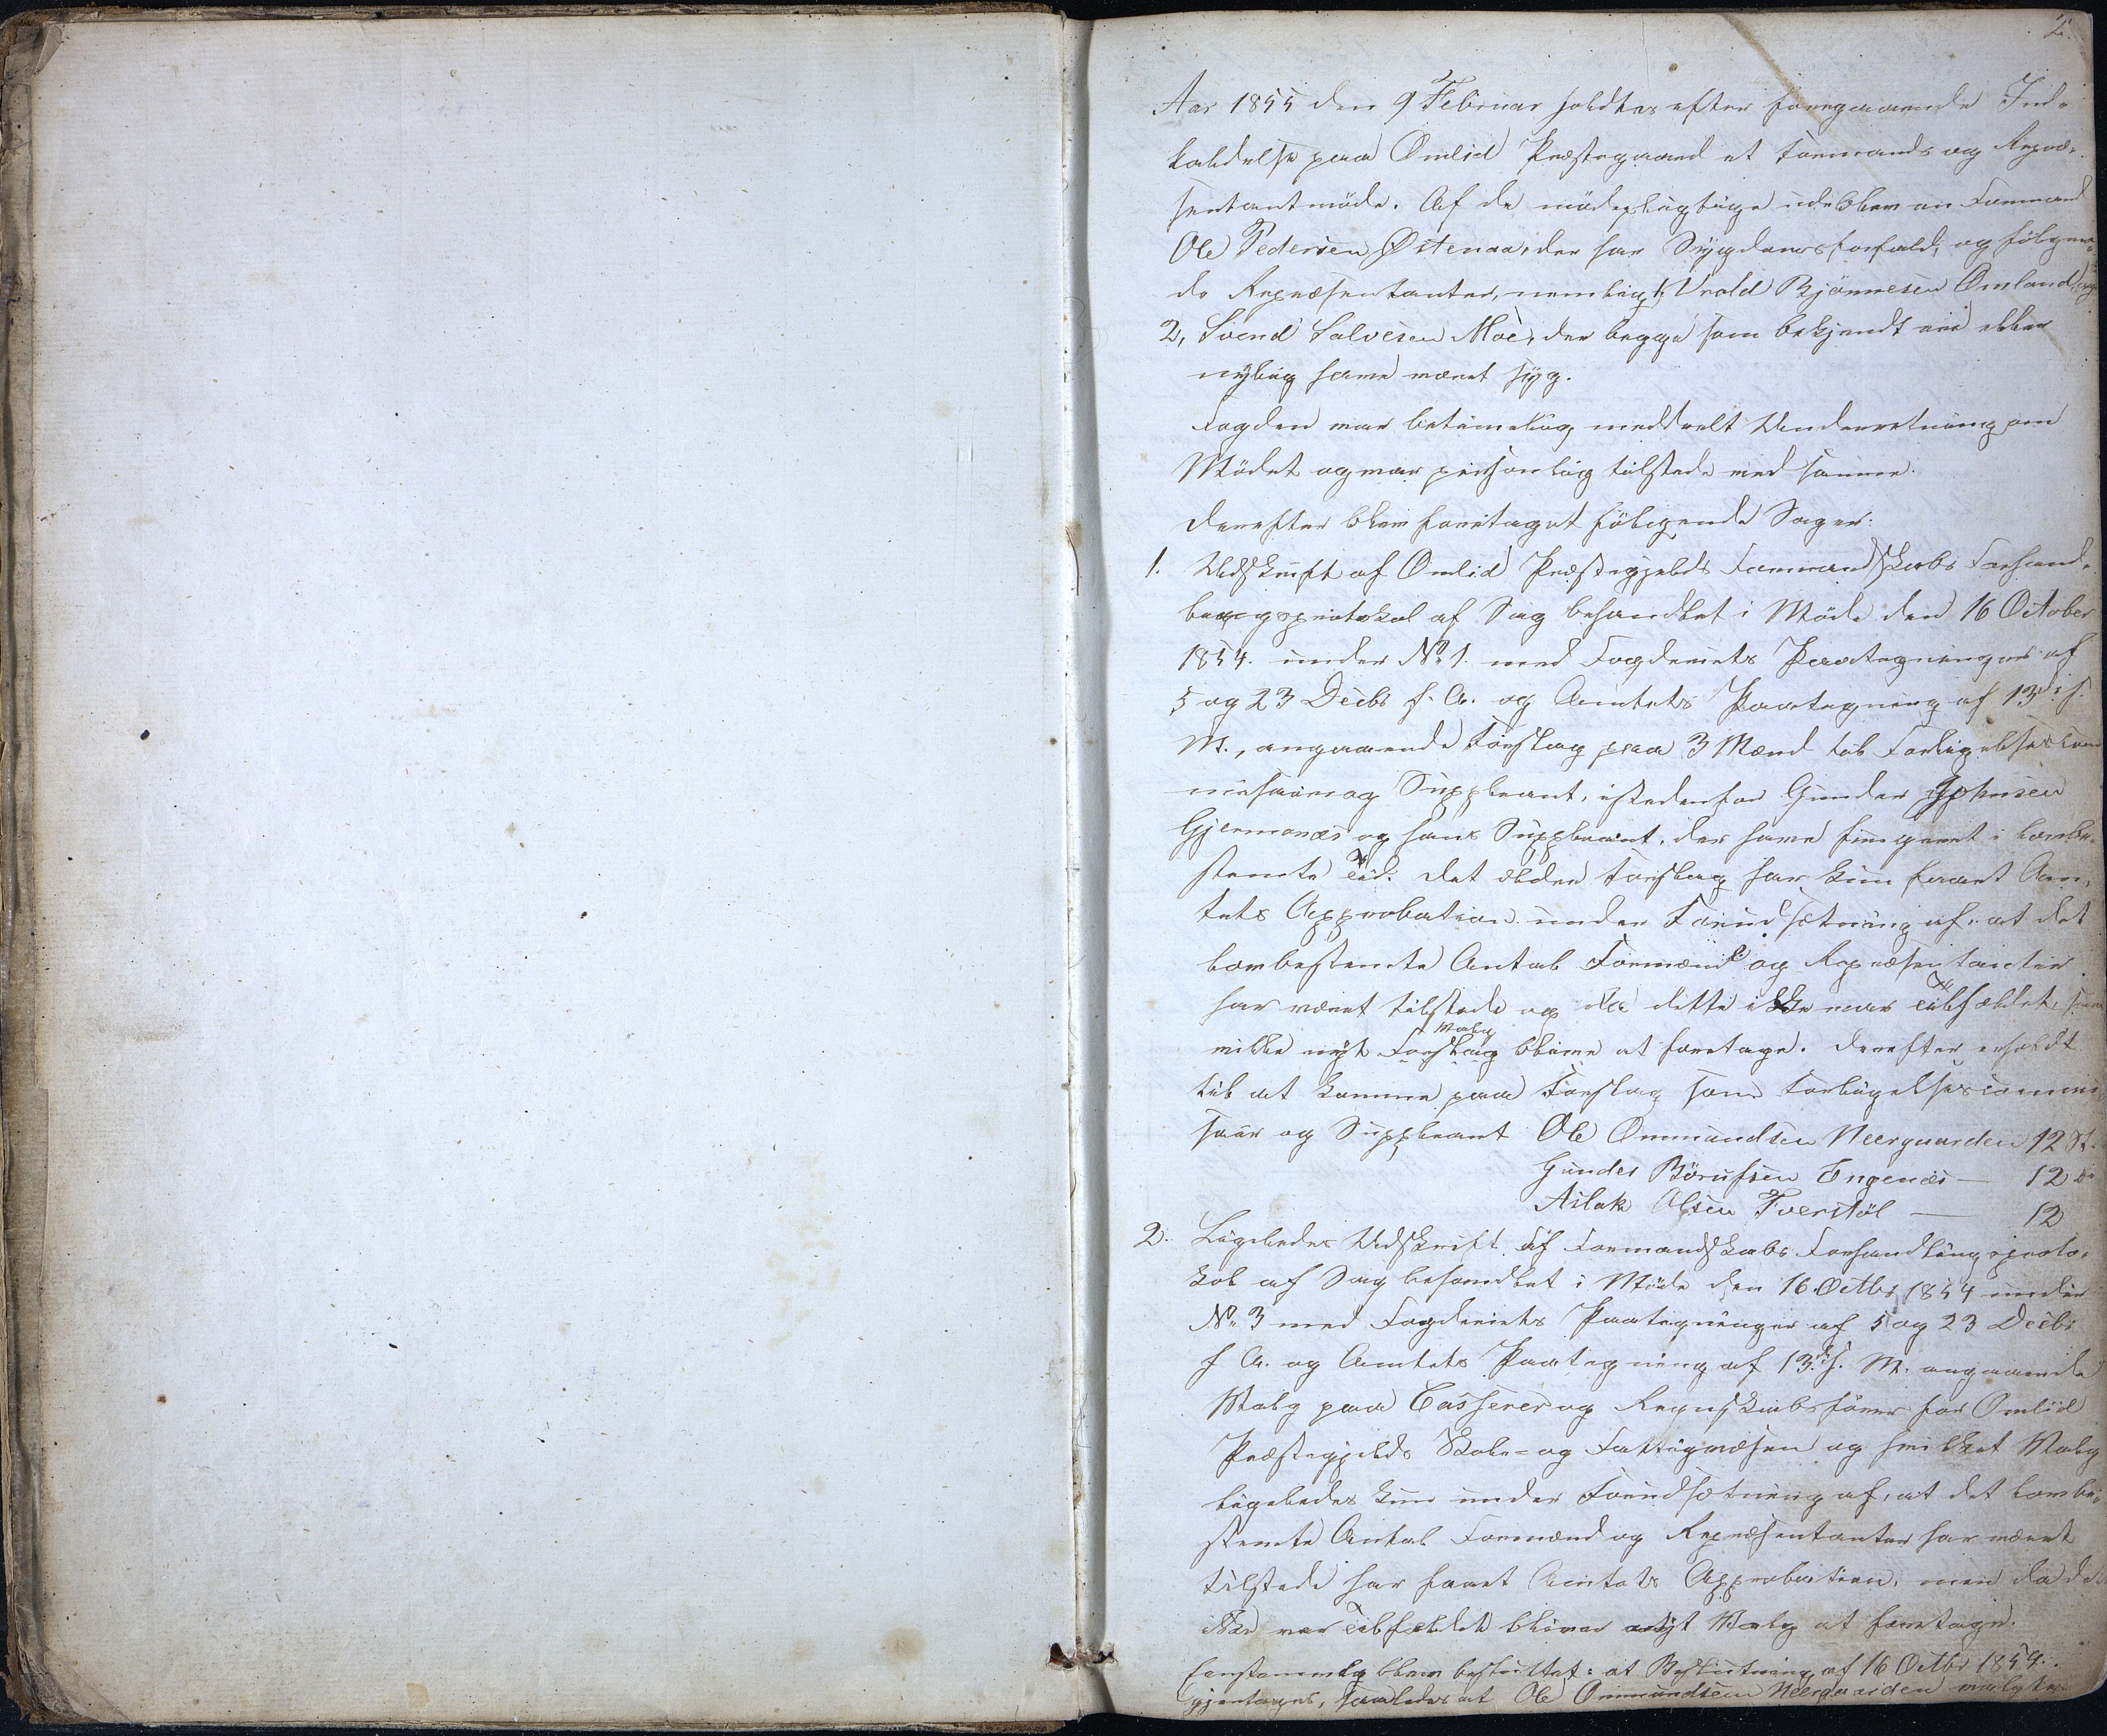 2.
Aar 1855 den 9 Februar holdtes efter foregaaende Ind-
kaldelse paa Omlid Præstegaard et Formands og Repræ-
sentantmöde. Af de mödepligtige udeblev en Formand
Ole Pedersen Östenaa, der har Sygdomsforfald, og fölgen-
de Repræsentanter, nemlig 1, Vrold Björnnesen Omland, og
2, Svend Salvesen Moe, der begge som bekjendt nu eller
nylig have været syg.
Fogden var betimelig meddeelt Underretning om
Mödet og var personlig tilstede ved samme.
Derefter blev foretaget fölgende Sager:
1. Udskrift af Omlid Præstegjelds Formandskabs Forhand-
lingsprotokol af Sag behandlet i Möde den 16 October
1854. under No 1. med Fogderiets Paategninger af
5 og 23 Decbr f. A. og Amtets Paategning af 13de f.
M., angaaende Forslag paa 3 Mænd til Forligelsescom
missair og Suppleant, istedenfor Gunder Johnsen
Gjermonæs og hans Suppleant, der have fungeret i lovbe-
stemte Tid. Det ældre Forslag har kun faaet Am-
tets Approbation under Forudsætning af, at det
lovbestemte Antal Formænd og Repræsentanter
har været tilstede og da dette ikke var Tilfældet,
vilde nyt Forslag Valg blive at foretage. Derefter erholdt
til at komme paa Forslag som Forligelsescommis
sair og Suppleant Ole Ommundsen Neergaarden 12 St.
Gunder Börufsen Engenæs — 12 do
Aslak Olsen Tverstöl — 12
2. Ligeledes Udskrift af Formandskabs Forhandlingsproto-
kol af Sag behandlet i Möde den 16 Octbr 1854 under
No 3 med Fogderiets Paategninger af 5 og 23 Decbr
f. A. og Amtets Paategning af 13de f. M. angaaende
Valg paa Casserer og Regnskabsförer for Omlid
Præstegjelds Skole- og Fattigvæsen og hvilket Valg
ligeledes kun under Forudsætning af, at det lovbe-
stemte Antal Formænd og Repræsentanter har været
tilstede har faaet Amtets Approbation, men da det
ikke var Tilfældet bliver nyt Valg at foretage.
Eenstemmig blev besluttet: at Beslutning af 16 Octbr 1854.
gjentages, saaledes at Ole Ommundsen Neergaarden valgtes